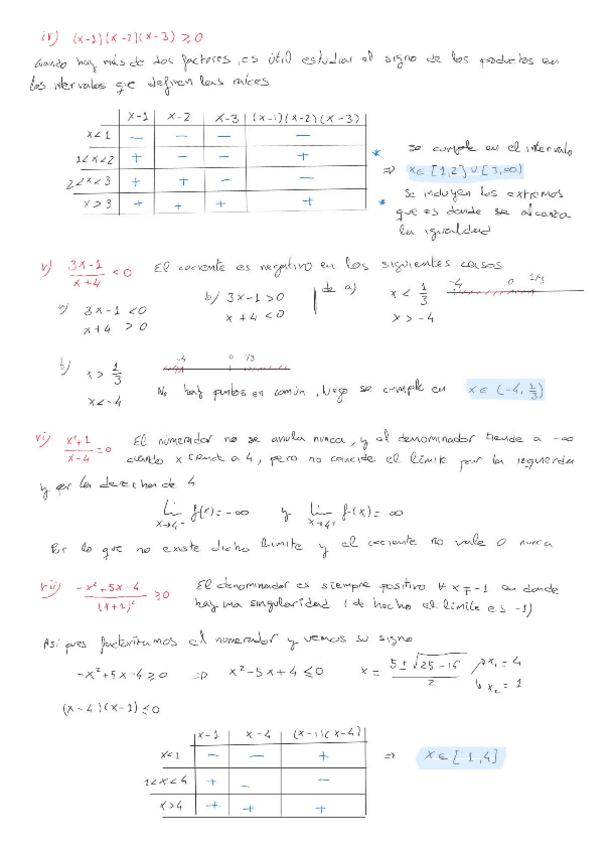 iv) (x-1)(x-2)(x-3) ≥ 0
Cuando hay más de dos factores, es útil estudiar el signo de los productos en
los intervalos que definen las raíces
x-1 x-2 x-3 (x-1)(x-2)(x-3)
x<1 - - - -
1<x<2 + - - + *
2<x<3 + + - -
x>3 + + + + *
se cumple en el intervalo
⇒ x∈[1,2]∪[3,∞)
Se incluyen los extremos
que es donde se alcanza
la igualdad
v) (3x-1)/(x+4) < 0 El cociente es negativo en los siguientes casos
a) 3x-1 < 0
x+4 > 0
b) 3x-1 > 0
x+4 < 0
de a) x < 1/3
x > -4
-4 0 1/3
b) x > 1/3
x < -4
-4 0 1/3
No hay puntos en común, luego se cumple en x∈(-4, 1/3)
vi) (x²+1)/(x-4) = 0 El numerador no se anula nunca, y el denominador tiende a -∞
cuando x tiende a 4, pero no coincide el límite por la izquierda
y por la derecha de 4
lim x→4⁻ f(x) = -∞ y lim x→4⁺ f(x) = ∞
Por lo que no existe dicho límite y el cociente no vale 0 nunca
vii) (-x²+5x-4)/(x+1)² ≥ 0 El denominador es siempre positivo ∀ x ≠ -1 en donde
hay una singularidad (de hecho el límite es -1)
Así pues factorizamos el numerador y vemos su signo
-x²+5x-4 ≥ 0 ⇒ x²-5x+4 ≤ 0 x = (5±√(25-16))/2 x₁ = 4
x₂ = 1
(x-4)(x-1) ≤ 0
x-1 x-4 (x-1)(x-4)
x<1 - - +
1<x<4 + - -
x>4 + + +
⇒ x∈[1,4]